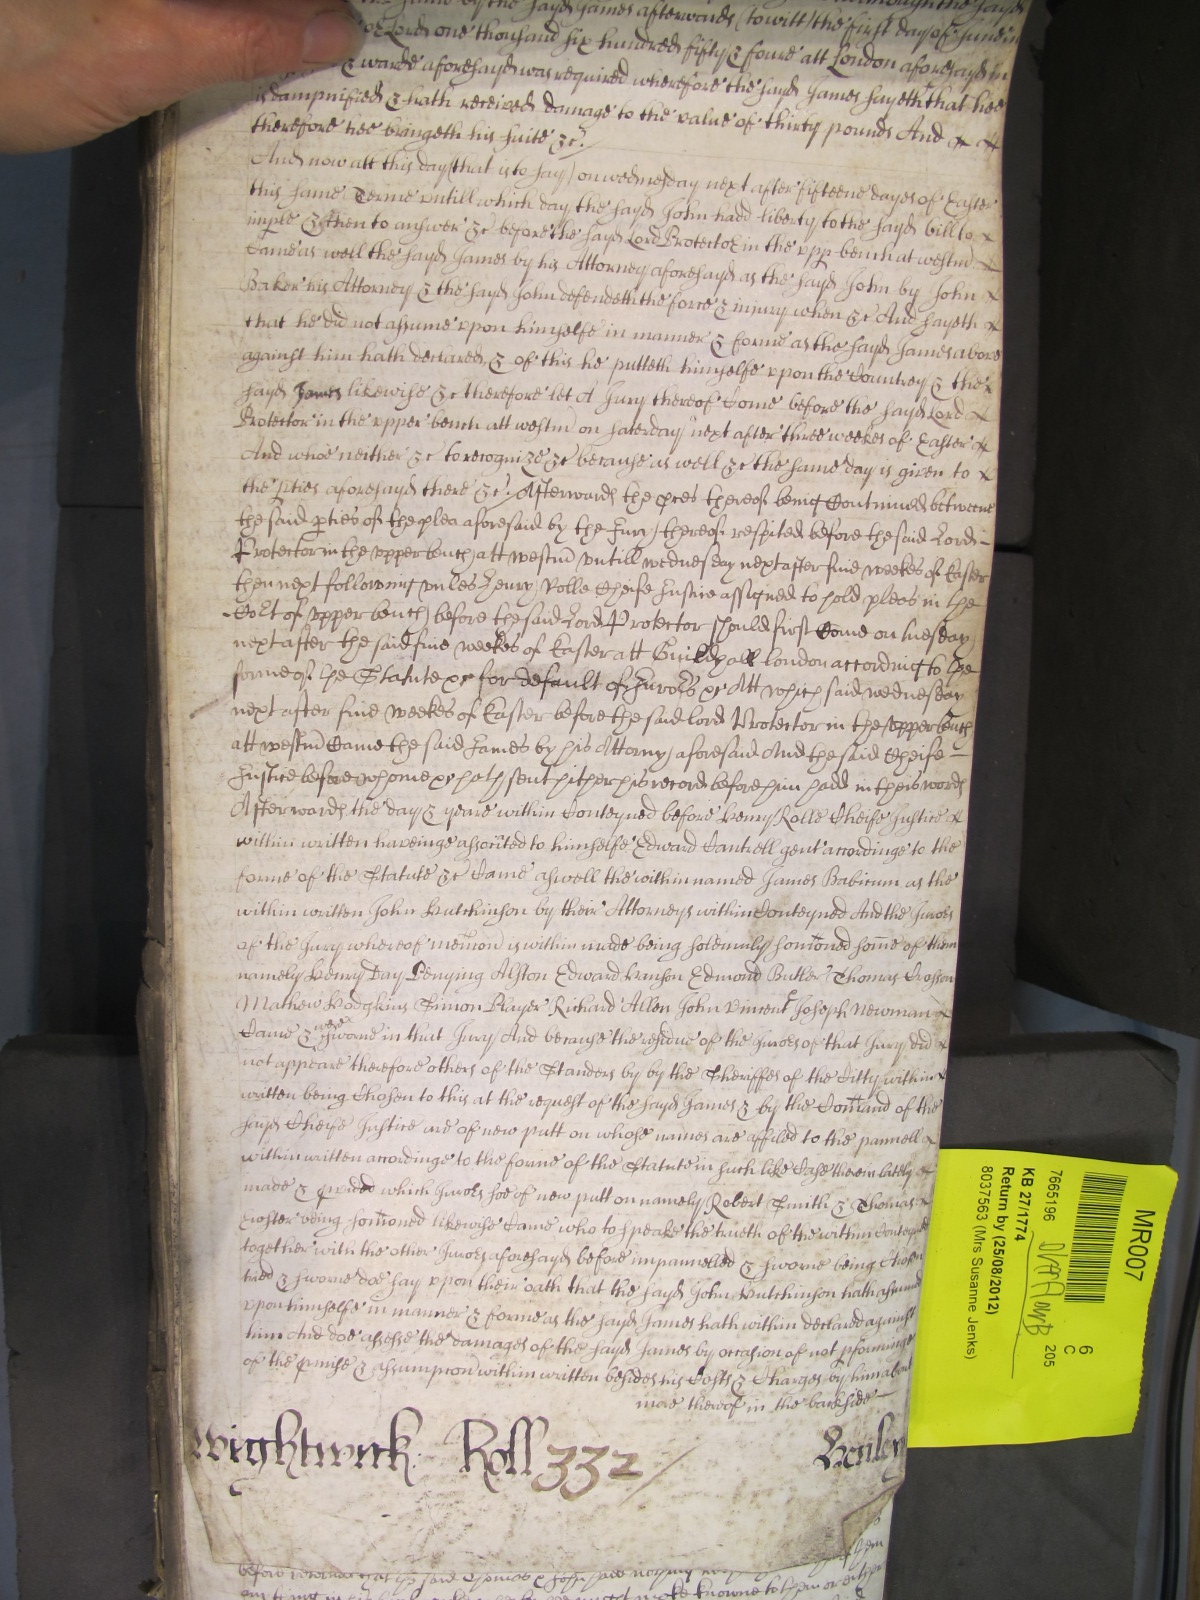 the sayd James afterwards (to witt) the first day of June in
Lord one thousand six hundred fifty & foure att London aforesayd in
& warde aforesayd was required wherefore the sayd James sayeth that hee
is dampnified & hath received damage to the value of thirty pounds And
therefore hee bringeth his suite &c.
And now att this day (that is to say) on wednesday next after fifteene dayes of Easter
this same Terme untill which day the sayd John hadd liberty to the sayd bill to
imple & then to answer &c before the sayd Lord Protector in the upp bench at westm
Came as well the sayd James by his Attorney aforesayd as the sayd John by John
Baker his Attorney & the sayd John defendeth the force & injury when &c And sayeth
that he did not assume upon himselfe in manner & forme as the sayd James above
against him hath declared & of this he putteth himselfe upon the Countrey & the
sayd James likewise &c therefore let A Jury thereof Come before the sayd Lord
Protector in the upper bench att westm on saterday next after three weekes of Easter
And whoe neither &c to recognize &c because as well &c the same day is given to
the pties aforesayd there &c. Afterwards the pces thereof being Continued betweene
the said pties of the plea aforesaid by the Jury thereof respited before the said Lord
Protector in the upper bench att westm untill wednesday next after five weekes of Easter
then next following unles Henry Rolle Cheife Justice assigned to hold plees in the
Court of upper bench before the said Lord Protector should first Come on tuesday
next after the said five weekes of Easter att Guildhall London according to the
forme of the Statute &c for default of Jurors &c Att which said wednesday
next after five weekes of Easter before the said lord Protector in the upper bench
att westm Came the said James by his Attorny aforesaid And the said Cheife
Justice before whome &c hath sent hither his record before him hadd in theis words
Afterwards the day & yeare within Conteyned before Henry Rolle Cheife Justice
within written haveinge assotited to himselfe Edward Cantrell gent accordinge to the
forme of the Statute &c Came aswell the within named James Babicum as the
within written John Hutchinson by their Attorneys within Conteyned And the Jurors
of the Jury whereof mencon is within made being solemnly somoned some of them
namely Henry Day Penying Alston Edward Hanson Edmond Butler Thomas Crosson
Mathew Hodgkins Simon Player Richard Allen John Vincent & Joseph Newman
Came & were sworne in that Jury And because the residue of the Jurors of that Jury did
not appeare therefore others of the Standers by by the Sheriffes of the Citty within
written being Chosen to this at the request of the sayd James & by the Comand of the
sayd Cheife Justice are of new putt on whose names are affiled to the pannell
within written accordinge to the forme of the Statute in such like Case therein lately
made & pvided which Jurors soe of new putt on namely Robert Smith & Thomas
being somoned likewise Came who to speake the trueth of the within Conteyned
together with the other Jurors aforesayd before impannelled & sworne being Chosen
tried & sworne doe say upon their oath that the sayd John Hutchinson hath assumed
upon himselfe in manner & forme as the sayd James hath within declared against
him And doe assesse the damages of the sayd James by occasion of not pforminge
of the pmise & assumpcon within written besides his Costs & Charges by him about
more thereof in the backside
Wightwick Roll 332 Henley
MR007
7665196
KB 27/1774
Return by (25/08/2012)
8037563 (Mrs Susanne Jenks)
6
C
205